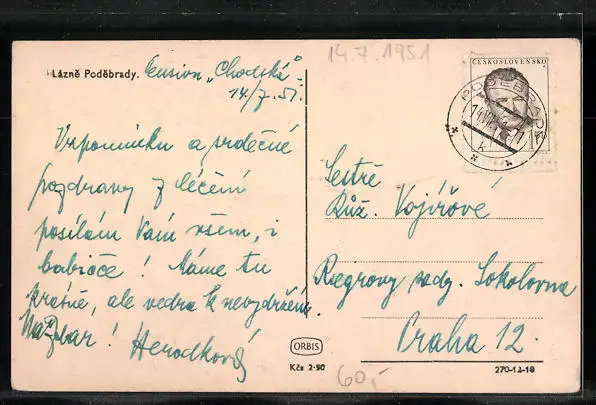 14.7.1951
Lázně Poděbrady. Pension „Chodská“
14./7. 51.
Vzpomínku a srdečné
pozdravy z léčení
posílám Vám všem, i
babičce! Máme tu
krásně, ale vedra k nevydržení.
Nazdar! Herodková
ČESKOSLOVENSKO
PODĚBRADY
Sestře
Růž. Vojířové
Riegrovy sady. Sokolovna
Praha 12.
ORBIS
Kčs 2·50
60,-
270-12-10